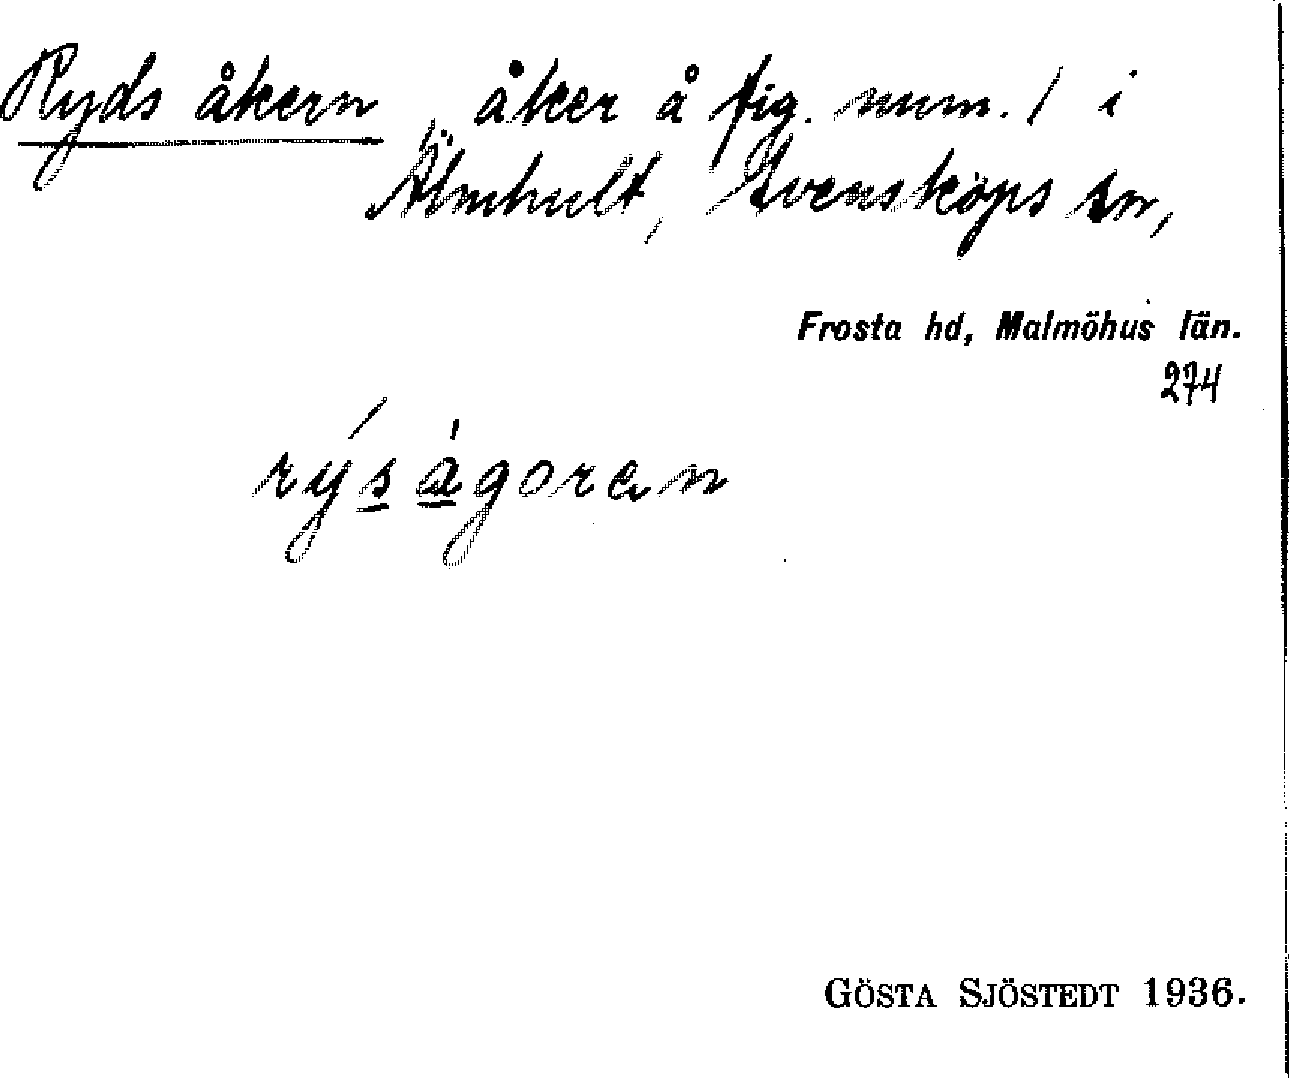 Ryds åkern, åker å fig. num. 1 i
Älmhult, Svensköps sn,
Frosta hd, Malmöhus län.
274
rýs ágoran
GÖSTA SJÖSTEDT 1936.